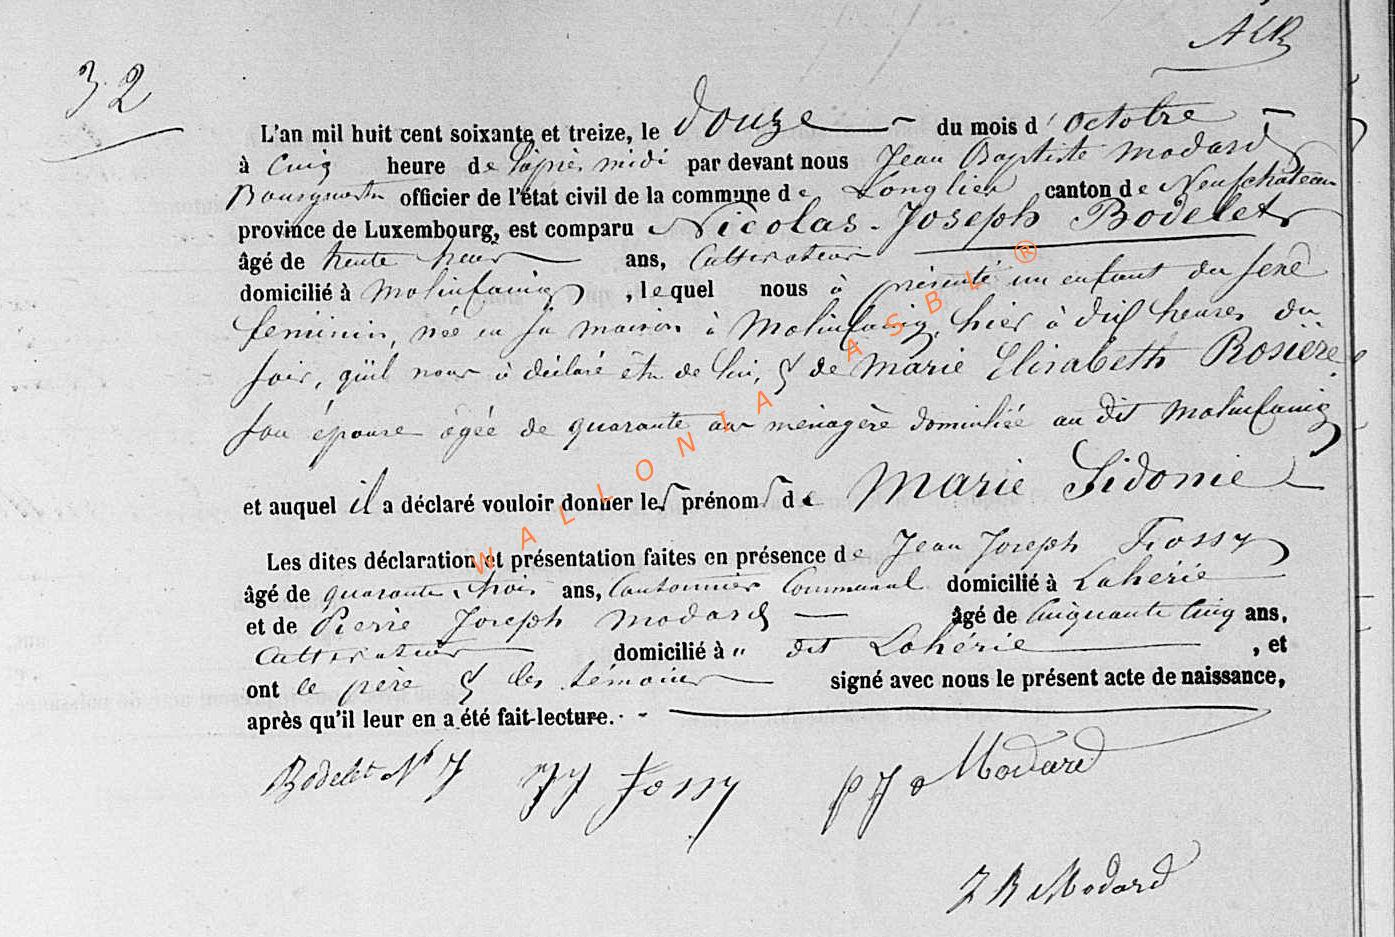 32
L'an mil huit cent soixante et treize, le douze du mois d'octobre
à Cinq heure de l'après midi par devant nous Jean Baptiste Modard
Bourgmestre officier de l'état civil de la commune de Longlier canton de Neufchateau
province de Luxembourg, est comparu Nicolas-Joseph Bodelet
âgé de trente neuf ans, Cultivateur
domicilié à Molinfaing, lequel nous à présenté un enfant du sexe
feminin, née en sa maison à Molinfaing, hier à dix heures du
soir, qu'il nous à déclaré être de lui, & de Marie Elisabeth Rosière
son épouse agée de quarante ans menagère domiciliée au dit Molinfaing
et auquel il a déclaré vouloir donner les prénoms de Marie Sidonie
Les dites déclaration et présentation faites en présence de Jean Joseph Fossy
âgé de quarante trois ans, Cantonnier Communal domicilié à Lahérie
et de Pierre Joseph Modard âgé de Cinquante Cinq ans,
Cultivateur domicilié à " dit Lahérie, et
ont le père & les témoins signé avec nous le présent acte de naissance,
après qu'il leur en a été fait-lecture.
Bodelet N J JJ Fossy P J Modard
J B Modard
WALLONIA ASBL ®